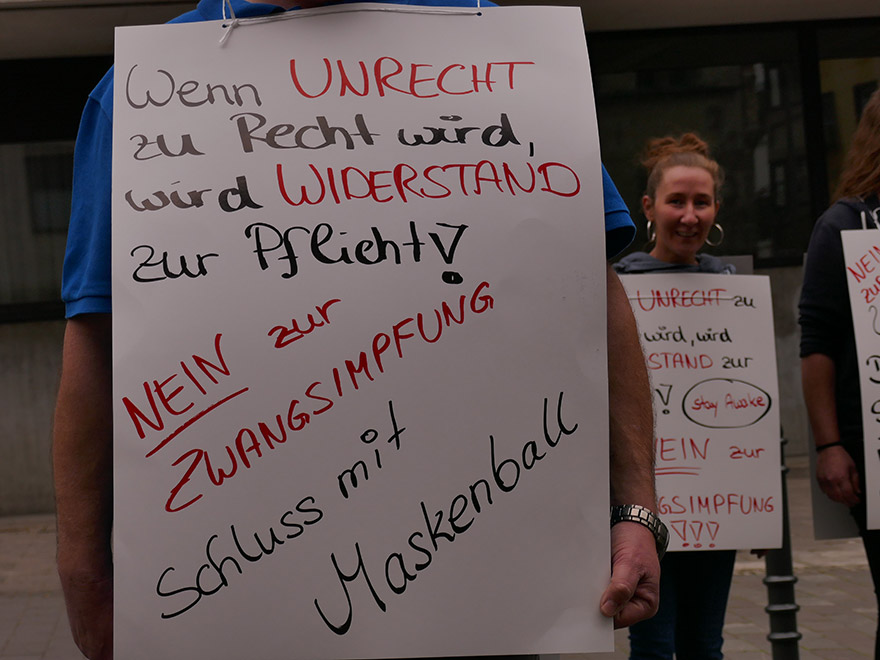 Wenn UNRECHT
zu Recht wird,
wird WIDERSTAND
zur Pflicht!
NEIN zur
ZWANGSIMPFUNG
Schluss mit
Maskenball
UNRECHT zu
wird, wird
STAND zur
!
stay Awake
EIN zur
GSIMPFUNG
!!!
NEIN
zur